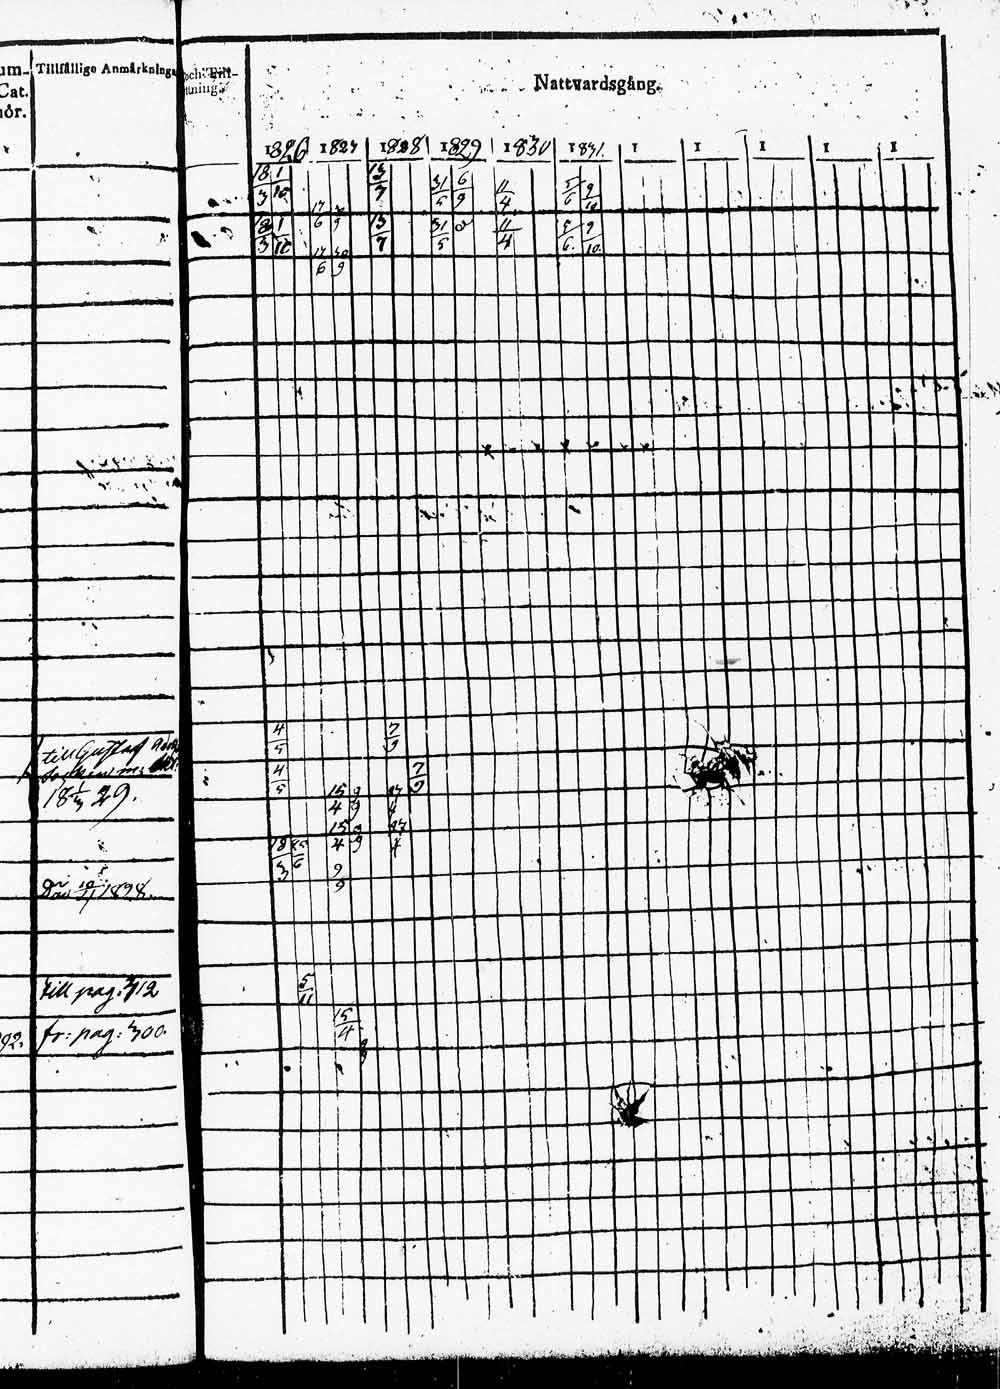 um-
Cat.
hör.
Tillfällige Anmärkninga
och Till-
tning.
Nattvardsgång.
1826 1827 1828 1829 1830 1831. 1 1 1 1 1
18/3 1/10 13/7 31/5 6/9 11/4 5/6 9/10
17/6 9
18/3 1/10 13/7 31/5 11/4 5/6 9/10
17/6 30/9
4/5 7/9
till Gustaf
4/5 7/9
18 1/3 29.
15/4 9/9 27/4
15/4 9/9 27/4
18/3 25/6
9/9
1828.
5/11
till pag: 312
15/4
92.
fr: pag: 300.
9/9